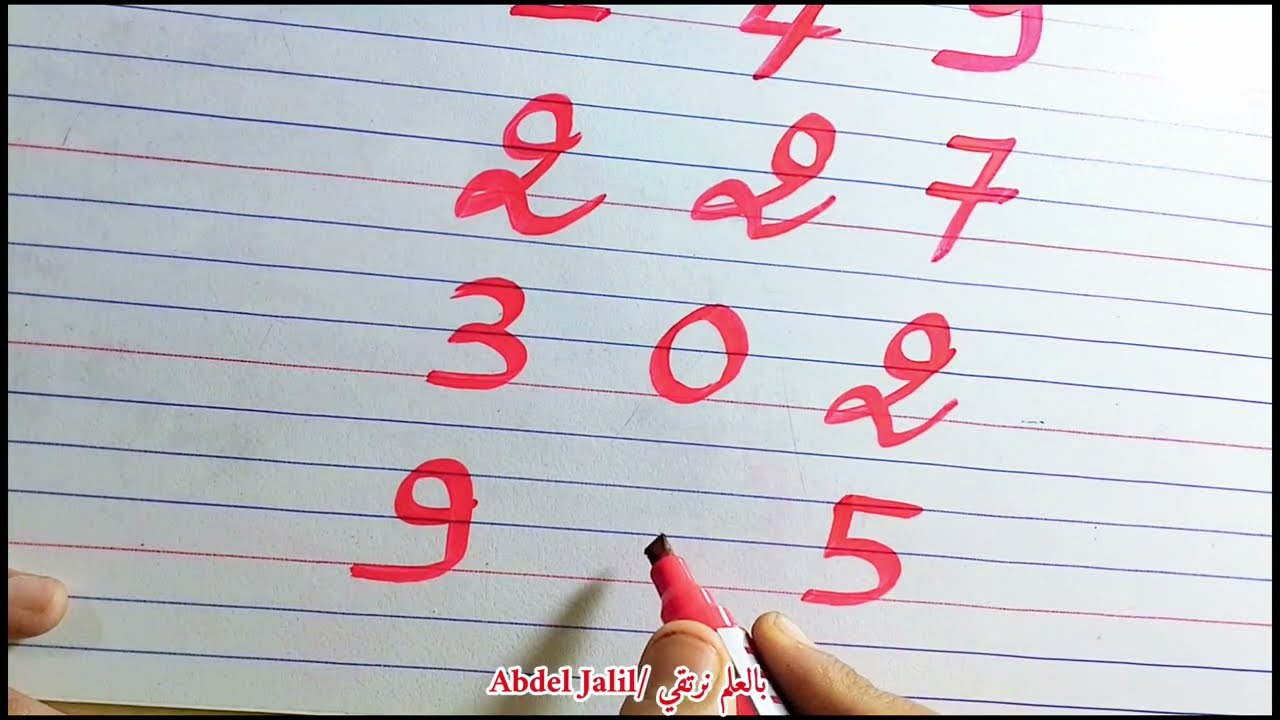 4 9
2 2 7
3 0 2
9 5
Abdel Jalil/ بالعلم نرتقي